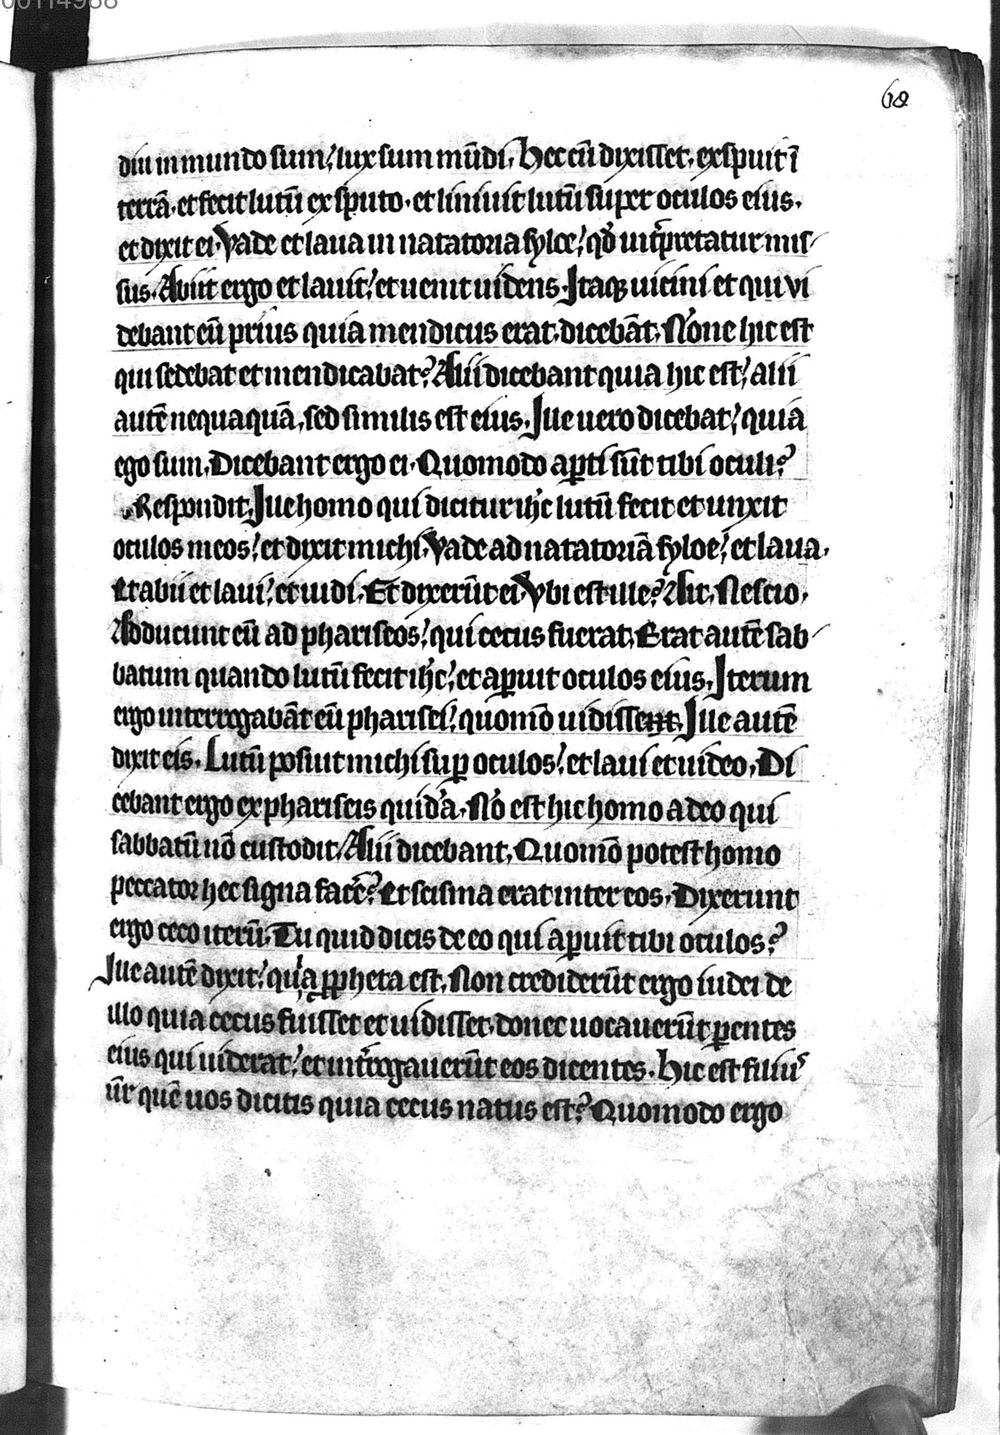 68
diu in mundo sum, lux sum mūdi. Hec cū dixisset, exspuit ī
terrā, et fecit lutū ex sputo, et liniuit lutū super oculos eius.
et dixit ei. Vade et laua in natatoria syloe, qd̕ int̕pretatur mis-
sus. Abiit ergo et lauit, et uenit uidens. Itaq; uicini et qui vi
debant eū prius quia mendicus erat, dicebāt. Nōne hic est
qui sedebat et mendicabat? Alii dicebant quia hic est, alii
autē nequaquā, sed similis est eius. Ille uero dicebat, quia
ego sum. Dicebant ergo ei. Quomodo aꝑti sūt tibi oculi?
Respondit. Ille homo qui dicitur ihc̄ lutū fecit et unxit
oculos meos, et dixit michi. Vade ad natatoriā syloe, et laua.
Et abii et laui, et uidi. Et dixerūt ei. Vbi est ille? Ait. Nescio.
Adducunt eū ad phariseos, qui cecus fuerat. Erat autē sab-
batum quando lutū fecit ihc̄, et aꝑuit oculos eius. Iterum
ergo interrogabāt eū pharisei, quomō uidissent. Ille autē
dixit eis. Lutū posuit michi suꝑ oculos, et laui et uideo. Di
cebant ergo ex phariseis quidā. Nō est hic homo a deo qui
sabbatū nō custodit. Alii dicebant. Quomō potest homo
peccator hec signa facē? Et scisma erat inter eos. Dixerunt
ergo ceco iterū. Tu quid dicis de eo qui aꝑuit tibi oculos?
Ille autē dixit, quia ꝓpheta est. Non crediderūt ergo iudei de
illo quia cecus fuisset et uidisset, donec uocauerūt ꝑentes
eius qui uiderat, et int̕rogauerūt eos dicentes. Hic est filiu᷒
ūr quē uos dicitis quia cecus natus est? Quomodo ergo